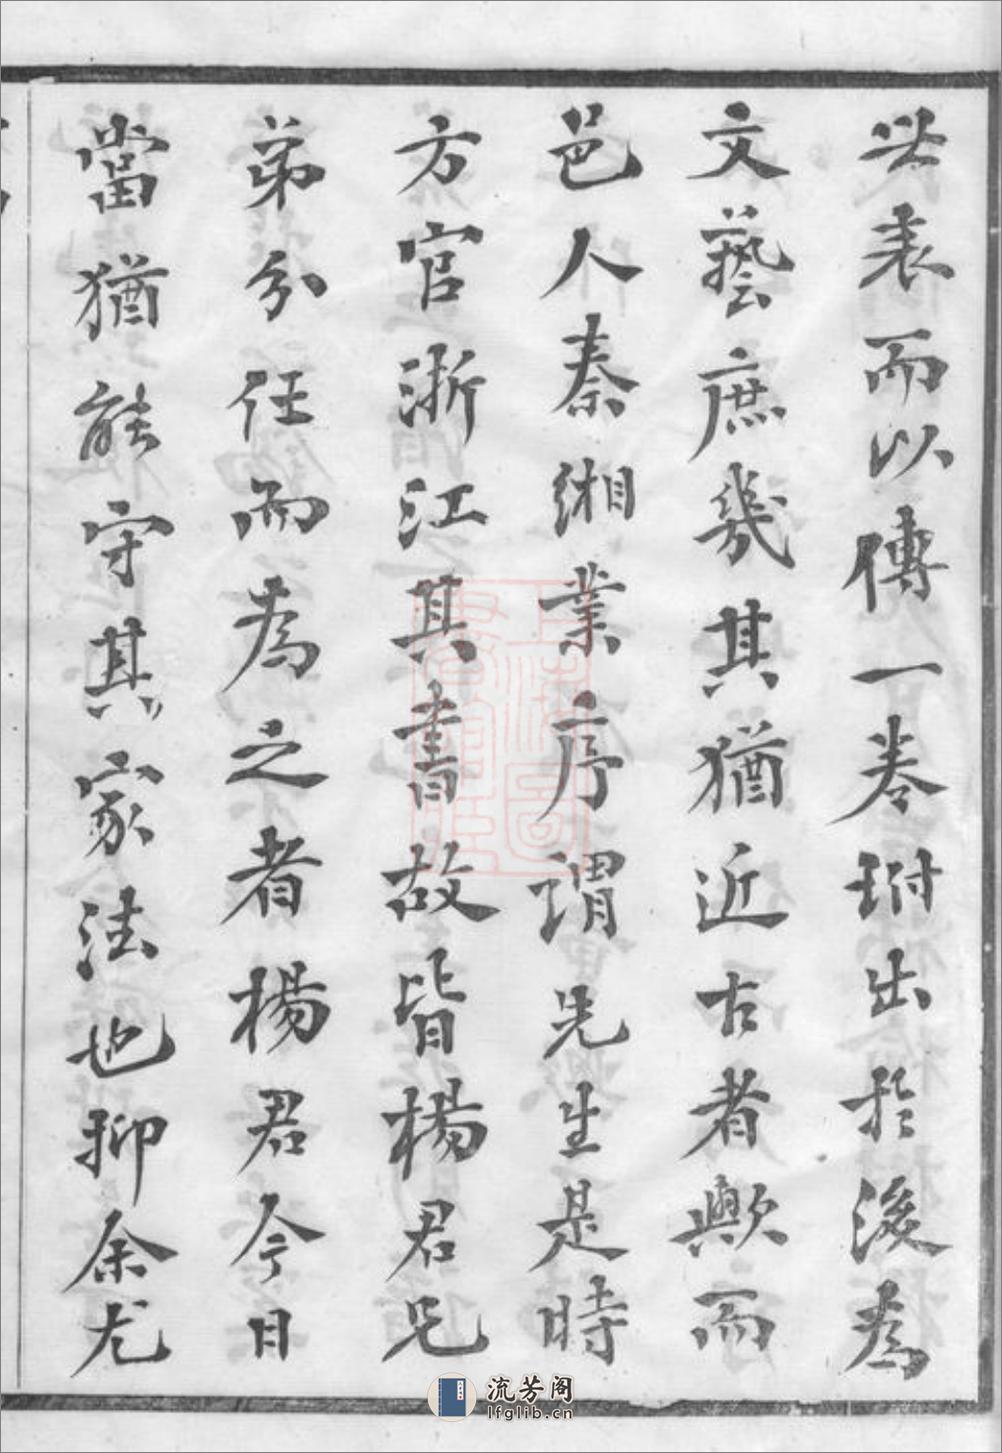 世表而以傳一卷坿出於後為
文藝庶幾其猶近古者歟而
邑人秦緗業序謂先生是時
方官浙江其書故皆楊君兄
弟分任而為之者楊君今日
當猶能守其家法也抑余尤
流芳阁
lfglib.cn